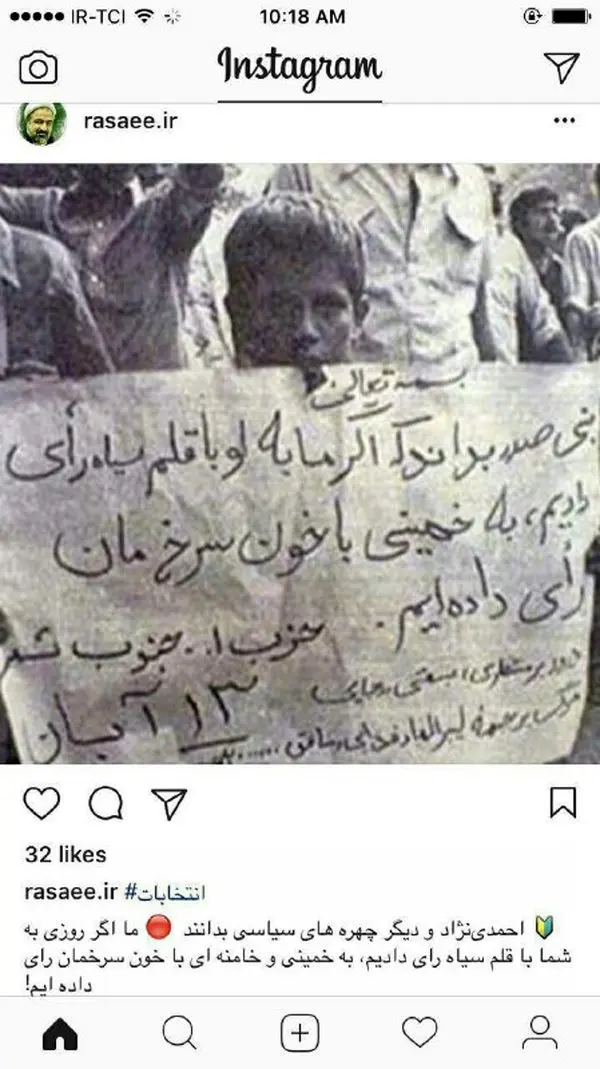 IR-TCI 10:18 AM
Instagram
rasaee.ir
بسمه تعالی
بنی صدر بداند که اگر ما به او با قلم سیاه رأی
دادیم، به خمینی با خون سرخ مان
رأی داده‌ایم.
حزب ا.. جنوب
۱۳ آبان
32 likes
rasaee.ir #انتخابات
احمدی‌نژاد و دیگر چهره های سیاسی بدانند 🔴 ما اگر روزی به
شما با قلم سیاه رای دادیم، به خمینی و خامنه ای با خون سرخمان رای
داده ایم!